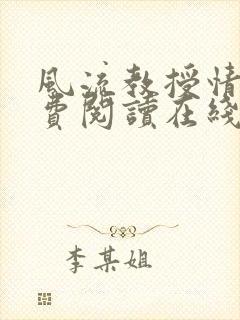 風流教授情
費閱讀在綫
李某姐